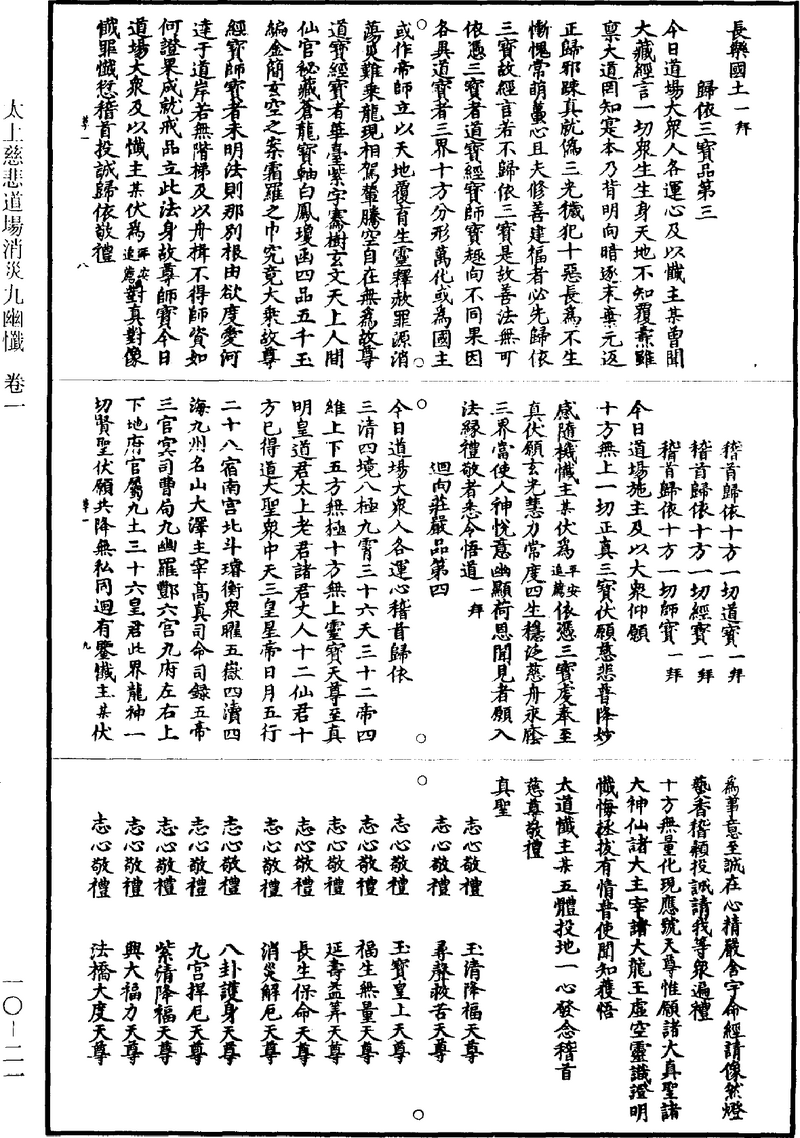 長樂國土一拜
歸依三寶品第三
今日道場大衆人各運心及以懺主某曾聞
大藏經言一切衆生生身天地不知覆燾雖
稟大道罔知寔本乃背明向暗逐末棄元返
正歸邪踈真就偽三光穢犯十惡長為不生
慚愧常萌蠆心且夫修善建福者必先歸依
三寶故經言若不歸依三寶是故善法無可
依憑三寶者道寶經寶師寶趣向不同果因
各異道寶者三界十方分形萬化或為國主
或作帝師立以天地覆育生靈釋赦罪源消
蕩灾難乘龍現相駕輦騰空自在無為故尊
道寶經寶者華臺紫宇騫樹玄文天上人間
仙官秘藏蒼龍寶軸白鳳瓊函四品五千玉
編金簡玄空之案霜羅之巾究竟大乘故尊
經寶師寶者未明法則那別根由欲度愛河
達于道岸若無階梯及以舟楫不得師資如
何證果成就戒品立此法身故尊師寶今日
道場大衆及以懺主某伏為平安追薦對真對像
懺罪懺愆稽首投誠歸依敬禮
稽首歸依十方一切道寶一拜
稽首歸依十方一切經寶一拜
稽首歸依十方一切師寶一拜
今日道場施主及以大衆仰願
十方無上一切正真三寶伏願慈悲普降妙
感隨機懺主某伏為平安追薦依憑三寶虔奉至
真伏願玄光慧力常度四生穩泛慈舟永離
三界當使人神悅意幽顯荷恩聞見者願入
法緣禮敬者悉令悟道一拜
迴向莊嚴品第四
今日道場大衆人各運心稽首歸依
三清四境八極九霄三十六天三十二帝四
維上下五方無極十方無上靈寶天尊至真
明皇道君太上老君諸君丈人十二仙君十
方已得道大聖衆中天三皇星帝日月五行
二十八宿南宮北斗璿衡衆曜五嶽四瀆四
海九州名山大澤主宰高真司命司錄五帝
三官冥司曹局九幽羅酆六宮九府左右上
下地府官屬九土三十六皇君此界龍神一
切賢聖伏願共降無私同迴有鑒懺主某伏
為事意至誠在心精嚴舍宇命經請像然燈
爇香稽顙投誠請我等衆遍禮
十方無量化現應號天尊惟願諸大真聖諸
大神仙諸大主宰諸大龍王虛空靈識證明
懺悔拯拔有情普使聞知獲悟
大道懺主某五體投地一心發念稽首
慈尊敬禮
真聖
志心敬禮　玉清降福天尊
志心敬禮　尋聲救苦天尊
志心敬禮　玉寶皇上天尊
志心敬禮　福生無量天尊
志心敬禮　延壽益筭天尊
志心敬禮　長生保命天尊
志心敬禮　消災解厄天尊
志心敬禮　八卦護身天尊
志心敬禮　九宮捍厄天尊
志心敬禮　紫清降福天尊
志心敬禮　興大福力天尊
志心敬禮　法橋大度天尊
太上慈悲道場消災九幽懺　卷一
一〇－二一